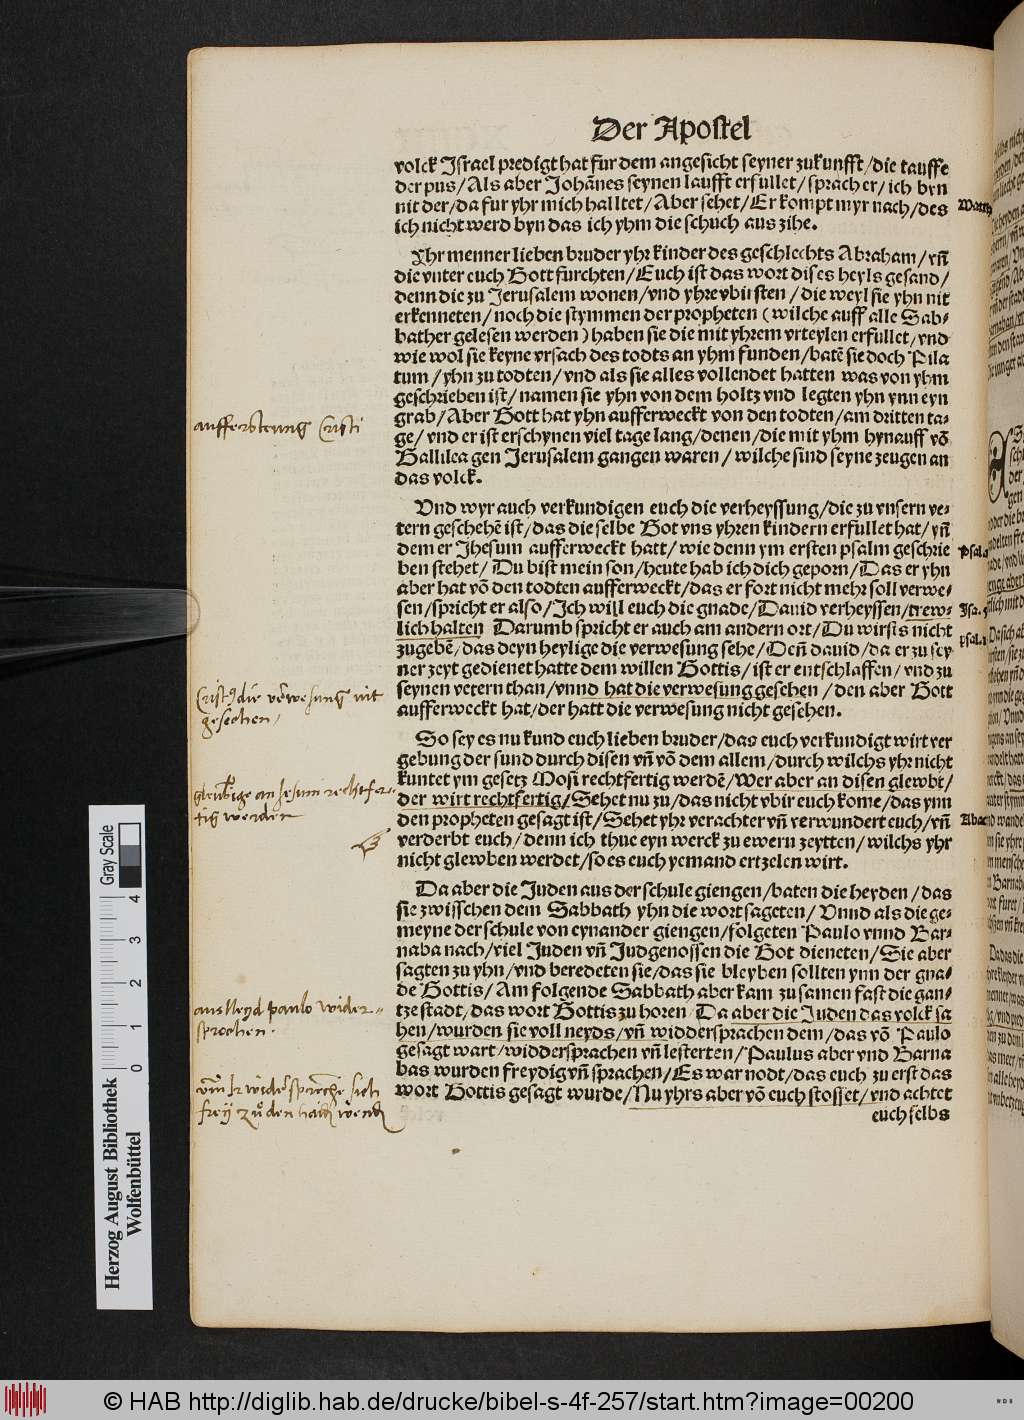 Der Apostel
volck Israel predigt hat fur dem angesicht seyner zukunfft/die tauffe
der pus/Als aber Johãnes seynen laufft erfullet/sprach er/ich byn
nit der/da fur yhr mich halltet/Aber sehet/Er kompt myr nach/des
ich nicht werd byn das ich yhm die schuch aus zihe.
Matth
Yhr menner lieben bruder yhr kinder des geschlechts Abraham/vñ
die vnter euch Gott furchten/Euch ist das wort dises heyls gesand/
denn die zu Jerusalem wonen/vnd yhre vbirsten/die weyl sie yhn nit
erkenneten/noch die stymmen der propheten (wilche auff alle Sab-
bather gelesen werden) haben sie die mit yhrem vrteylen erfullet/vnd
wie wol sie keyne vrsach des todts an yhm funden/batẽ sie doch Pila
tum/yhn zu todten/vnd als sie alles vollendet hatten was von yhm
geschrieben ist/namen sie yhn von dem holtz vnd legten yhn ynn eyn
grab/Aber Gott hat yhn aufferweckt von den todten/am dritten ta-
ge/vnd er ist erschynen viel tage lang/denen/die mit yhm hynauff võ
Gallilea gen Jerusalem gangen waren/wilche sind seyne zeugen an
das volck.
auffersteung Cristi
Vnd wyr auch verkundigen euch die verheyssung/die zu vnsern ve-
tern geschehẽ ist/das die selbe Got vns yhren kindern erfullet hat/yñ
dem er Jhesum aufferweckt hatt/wie denn ym ersten psalm geschrie
ben stehet/Du bist mein son/heute hab ich dich geporn/Das er yhn
aber hat võ den todten aufferweckt/das er fort nicht mehr soll verwe-
sen/spricht er also/Ich will euch die gnade/Dauid verheyssen/trew-
lich halten Darumb spricht er auch am andern ort/Du wirsts nicht
zugebẽ/das deyn heylige die verwesung sehe/Deñ dauid/da er zu sey
ner zeyt gedienet hatte dem willen Gottis/ist er entschlaffen/vnd zu
seynen vetern than/vnnd hat die verwesung gesehen/den aber Gott
aufferweckt hat/der hatt die verwesung nicht gesehen.
Psal.
Isa.
psal.
die verwesung nit
gesechen/
So sey es nu kund euch lieben bruder/das euch verkundigt wirt ver
gebung der sund durch disen vñ võ dem allem/durch wilchs yhr nicht
kuntet ym gesetz Mosi rechtfertig werdẽ/Wer aber an disen glewbt/
der wirt rechtfertig/Sehet nu zu/das nicht vbir euch kome/das ynn
den propheten gesagt ist/Sehet yhr verachter vñ verwundert euch/vñ
verderbt euch/denn ich thue eyn werck zu ewern zeytten/wilchs yhr
nicht glewben werdet/so es euch yemand ertzelen wirt.
Abac
an Jesum rechtfer-
tig werden
Da aber die Juden aus der schule giengen/baten die heyden/das
sie zwisschen dem Sabbath yhn die wort sageten/Vnnd als die ge-
meyne der schule von eynander giengen/folgeten Paulo vnnd Bar-
naba nach/viel Juden vñ Judgenossen die Got dieneten/Sie aber
sagten zu yhn/vnd beredeten sie/das sie bleyben sollten ynn der gna-
de Gottis/Am folgende Sabbath aber kam zu samen fast die gan-
tze stadt/das wort Gottis zu horen Da aber die Juden das volck sa
hen/wurden sie voll neyds/vñ widdersprachen dem/das võ Paulo
gesagt wart/widdersprachen vñ lesterten/Paulus aber vnd Barna
bas wurden freydig vñ sprachen/Es war nodt/das euch zu erst das
wort Gottis gesagt wurde/Nu yhrs aber võ euch stosset/vnd achtet
euch selbs
aus Neyd paulo wider-
sprochen.
Gray Scale
4
3
2
1
0
Herzog August Bibliothek
Wolfenbüttel
© HAB http://diglib.hab.de/drucke/bibel-s-4f-257/start.htm?image=00200